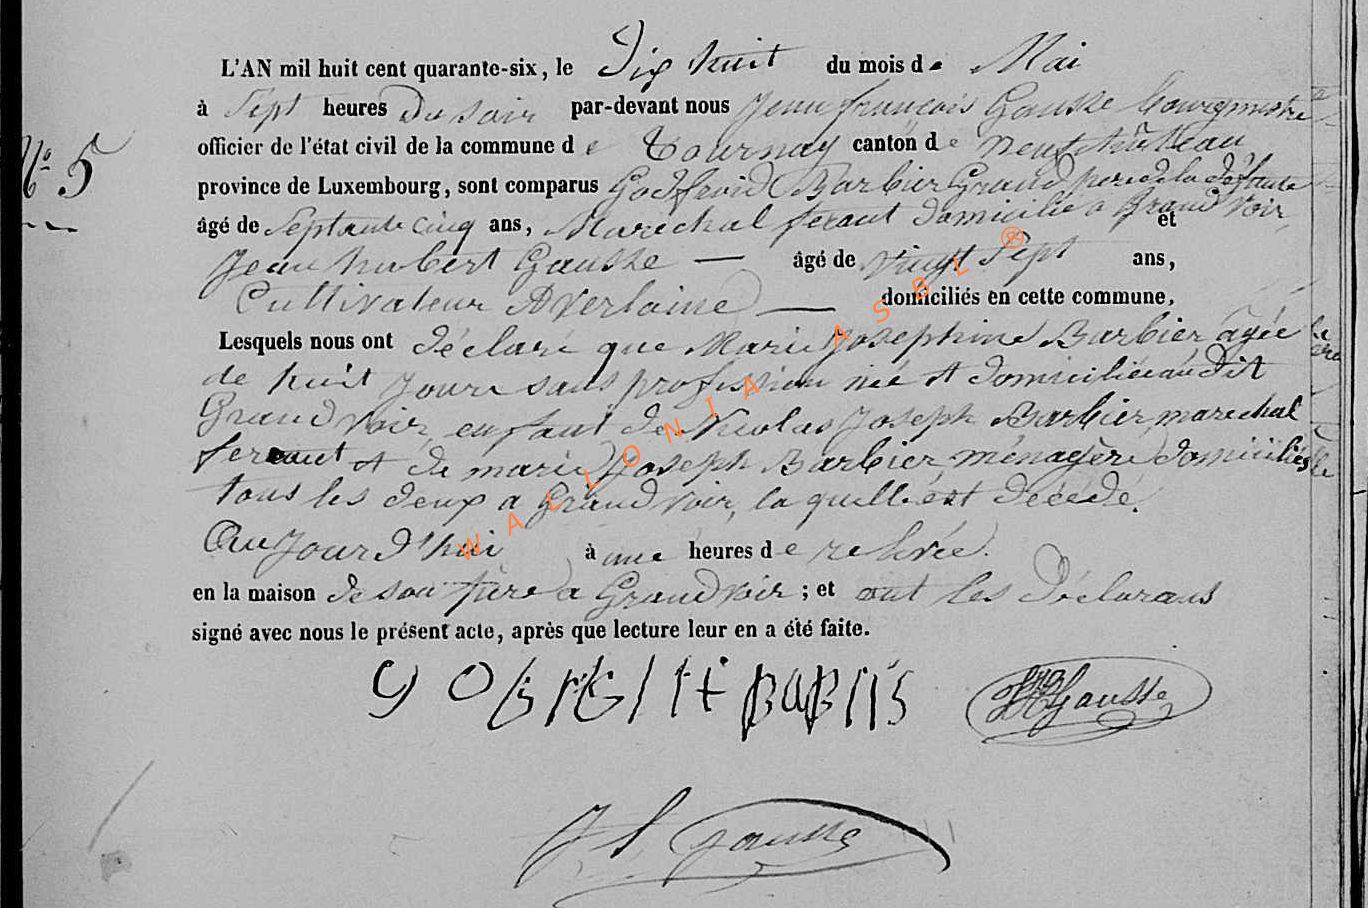 L'AN mil huit cent quarante-six, le Dix huit du mois de Mai
à Sept heures Du soir par-devant nous Jean françois Gausse bourgmestre
N° 5
officier de l'état civil de la commune de Tournay canton de Neufchâteau
province de Luxembourg, sont comparus Godffroid Barbier Grand pere de la défunte
âgé de Septante cinq ans, Marechal ferant domicilié a Grand Voir et
Jean hubert Gausse — âgé de vingt Sept ans,
Cultivateur A Verlaine — domiciliés en cette commune,
Lesquels nous ont déclaré que Marie Josephine Barbier âgée
de huit Jours sans profession née et domiciliée au dit
Grand Voir, enfant de Nicolas Joseph Barbier, marechal
ferant et de marie Joseph Barbier ménagère domiciliés
tous les deux a Grand voir, la quelle est décédé
Au Jourd'hui à une heures de relevée.
en la maison de son père a Grand voir ; et ont les Déclarans
signé avec nous le présent acte, après que lecture leur en a été faite.
Gausse
J f Gausse
WALLONIA ASBL ®